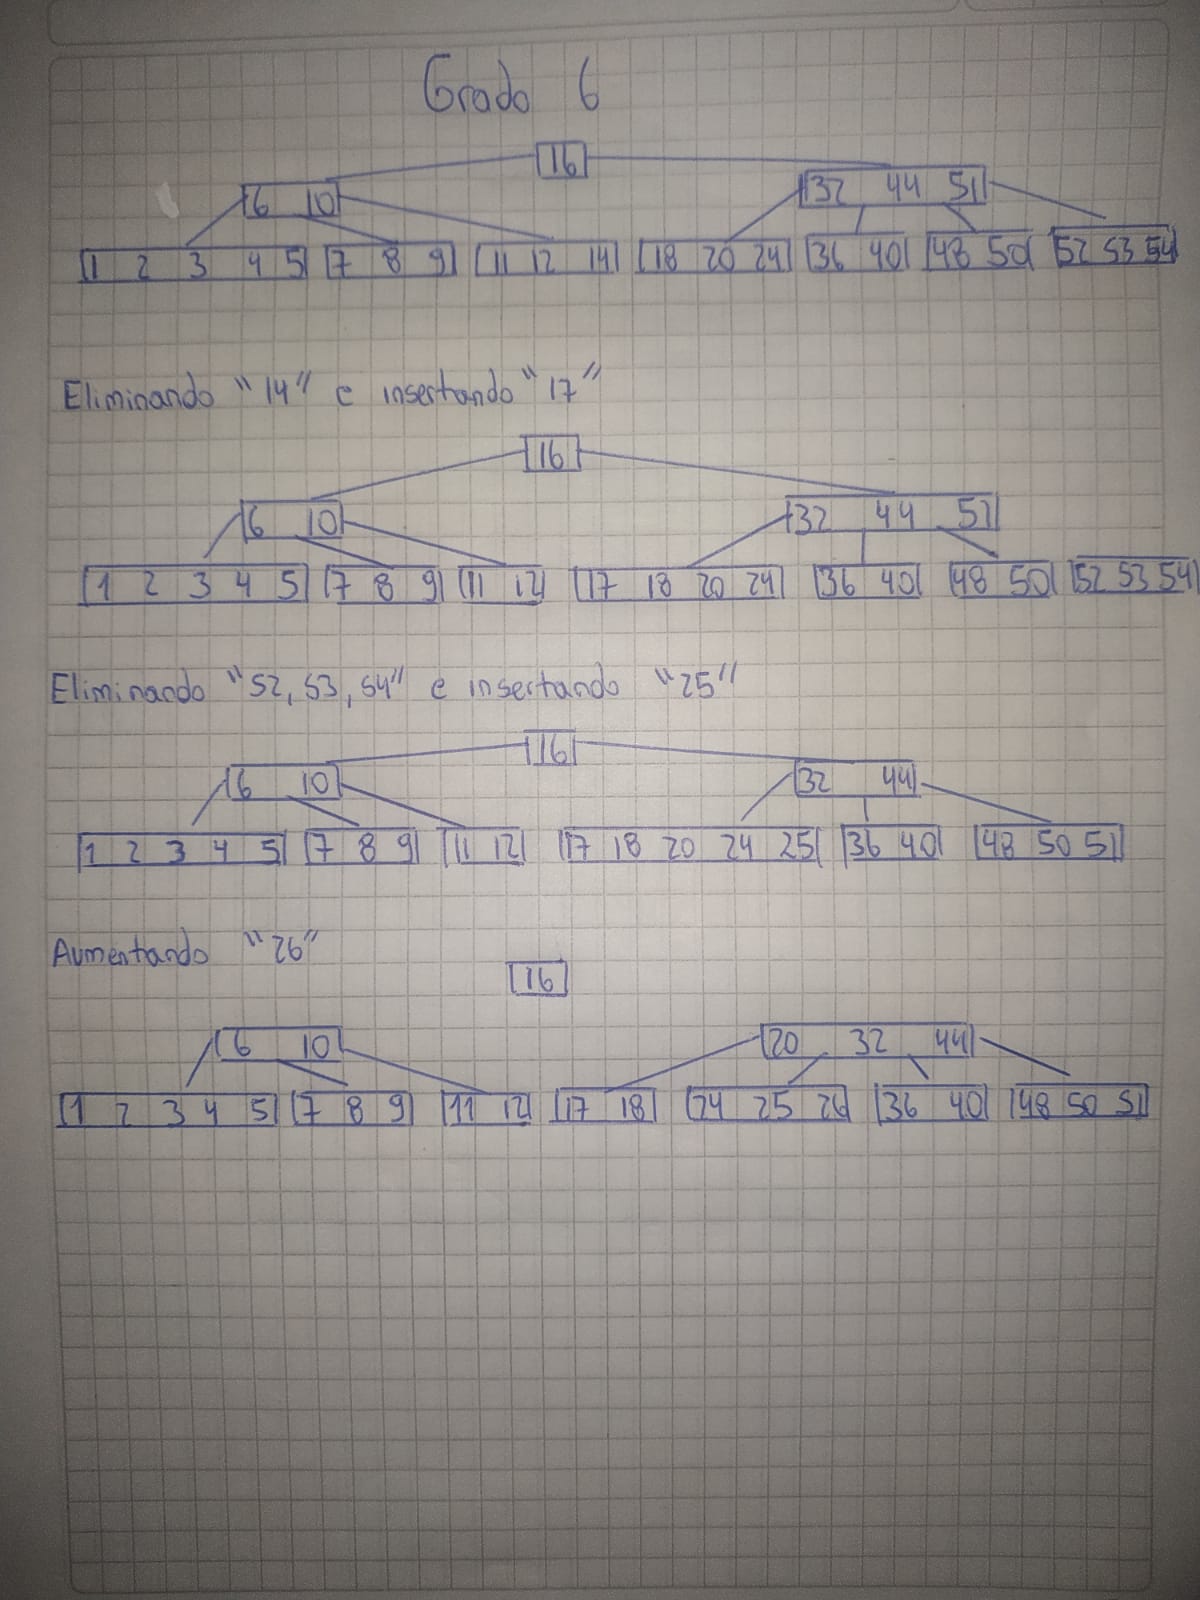 Grado 6
16
6 10 32 44 51
1 2 3 4 5 7 8 9 11 12 14 18 20 24 36 40 48 50 52 53 54
Eliminando "14" e insertando "17"
16
6 10 32 44 51
1 2 3 4 5 7 8 9 11 12 17 18 20 24 36 40 48 50 52 53 54
Eliminando "52, 53, 54" e insertando "25"
16
6 10 32 44
1 2 3 4 5 7 8 9 11 12 17 18 20 24 25 36 40 48 50 51
Aumentando "26"
16
6 10 20 32 44
1 2 3 4 5 7 8 9 11 12 17 18 24 25 26 36 40 48 50 51